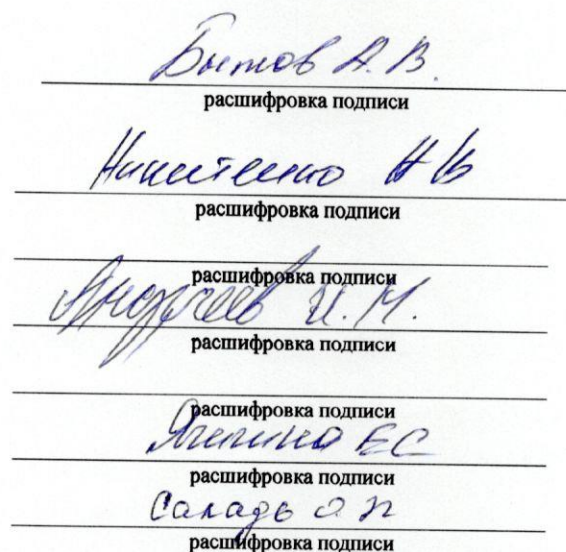 Бытов А. В.
расшифровка подписи
Никитенко Н В
расшифровка подписи
расшифровка подписи
Андреев И. М.
расшифровка подписи
расшифровка подписи
ЕС
расшифровка подписи
О Н
расшифровка подписи